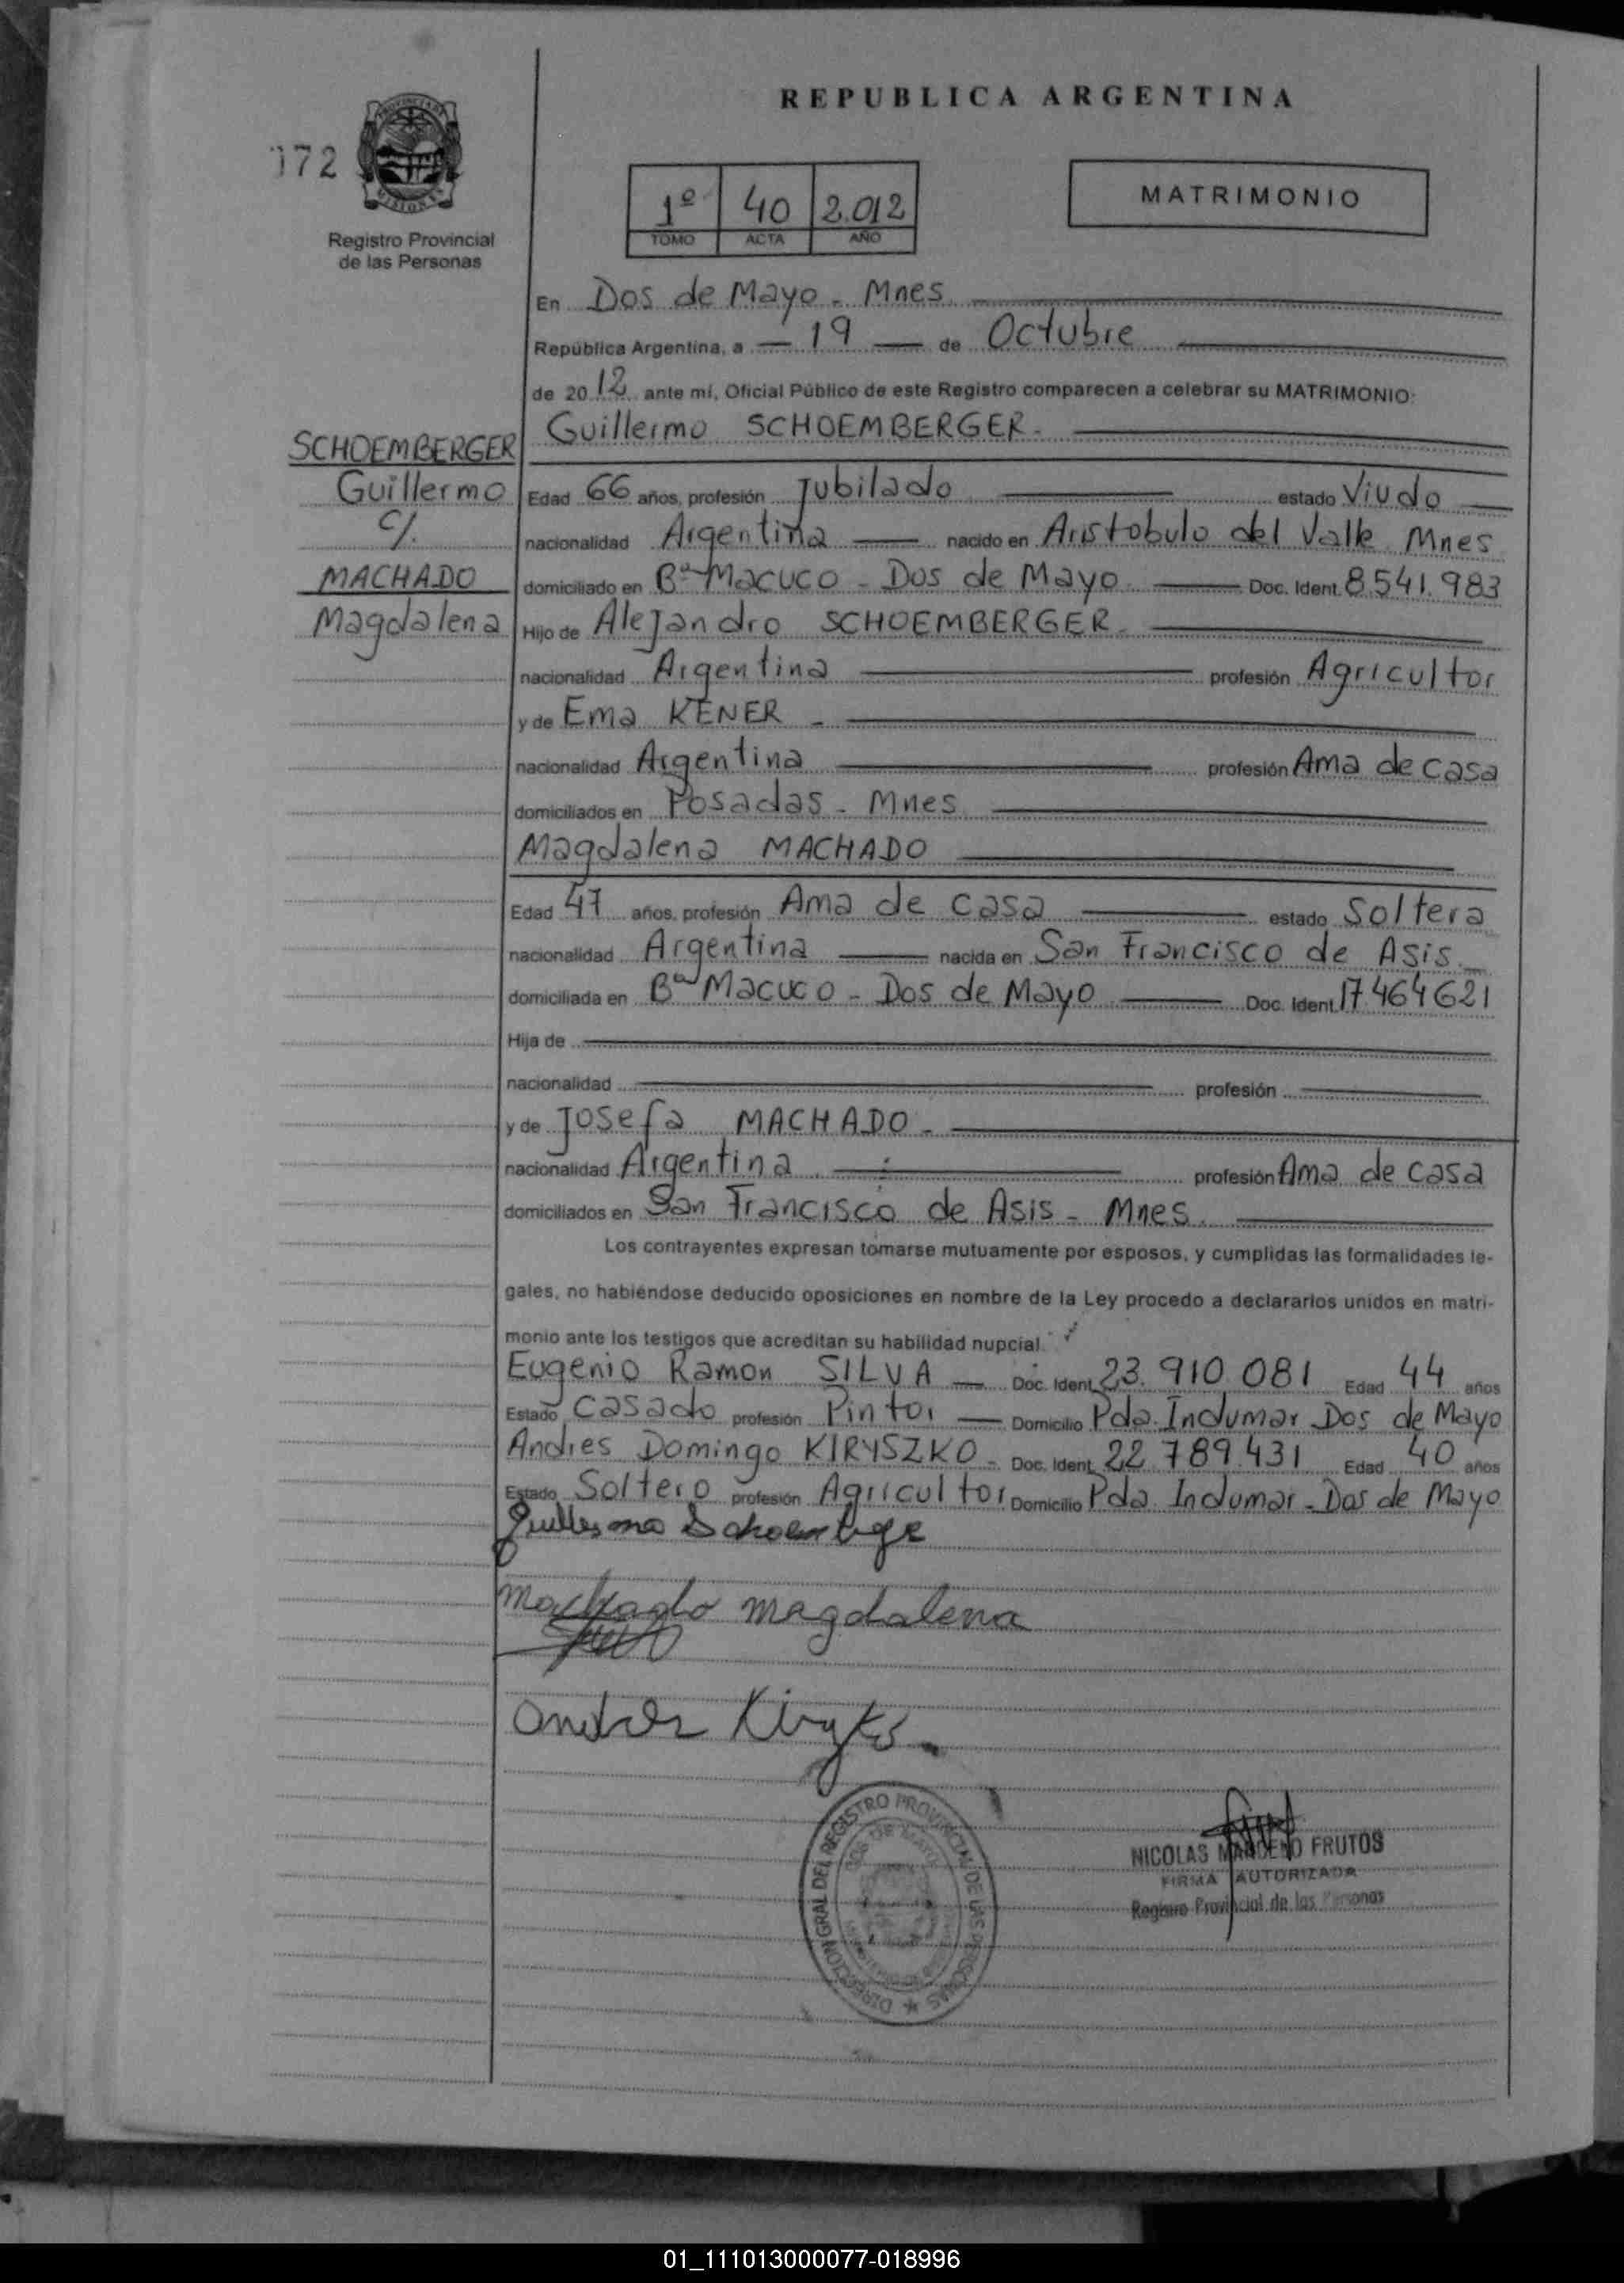 REPUBLICA ARGENTINA
172
PROVINCIA DE MISIONES
Registro Provincial
de las Personas
1º 40 2.012
TOMO ACTA AÑO
MATRIMONIO
En Dos de Mayo - Mnes
República Argentina, a 19 de Octubre
de 2012 ante mí, Oficial Público de este Registro comparecen a celebrar su MATRIMONIO:
SCHOEMBERGER
Guillermo
c/.
MACHADO
Magdalena
Guillermo SCHOEMBERGER
Edad 66 años, profesión Jubilado estado Viudo
nacionalidad Argentina nacido en Aristobulo del Valle Mnes
domiciliado en Bº Macuco - Dos de Mayo Doc. Ident. 8.541.983
Hijo de Alejandro SCHOEMBERGER
nacionalidad Argentina profesión Agricultor
y de Ema KENER
nacionalidad Argentina profesión Ama de casa
domiciliados en Posadas - Mnes
Magdalena MACHADO
Edad 47 años, profesión Ama de casa estado Soltera
nacionalidad Argentina nacida en San Francisco de Asis
domiciliada en Bº Macuco - Dos de Mayo Doc. Ident. 17.464621
Hija de
nacionalidad profesión
y de Josefa MACHADO
nacionalidad Argentina profesión Ama de casa
domiciliados en San Francisco de Asis - Mnes
Los contrayentes expresan tomarse mutuamente por esposos, y cumplidas las formalidades le-
gales, no habiéndose deducido oposiciones en nombre de la Ley procedo a declararlos unidos en matri-
monio ante los testigos que acreditan su habilidad nupcial.
Eugenio Ramon SILVA Doc. Ident. 23.910.081 Edad 44 años
Estado Casado profesión Pintor Domicilio Pda. Indumar Dos de Mayo
Andres Domingo KIRYSZKO Doc. Ident. 22.789.431 Edad 40 años
Estado Soltero profesión Agricultor Domicilio Pda. Indumar - Dos de Mayo
Machado magdalena
DIRECCION GRAL DEL REGISTRO PROVINCIAL DE LAS PERSONAS
DOS DE MAYO
NICOLAS FRUTOS
FIRMA AUTORIZADA
Registro Provincial de las Personas
01_111013000077-018996